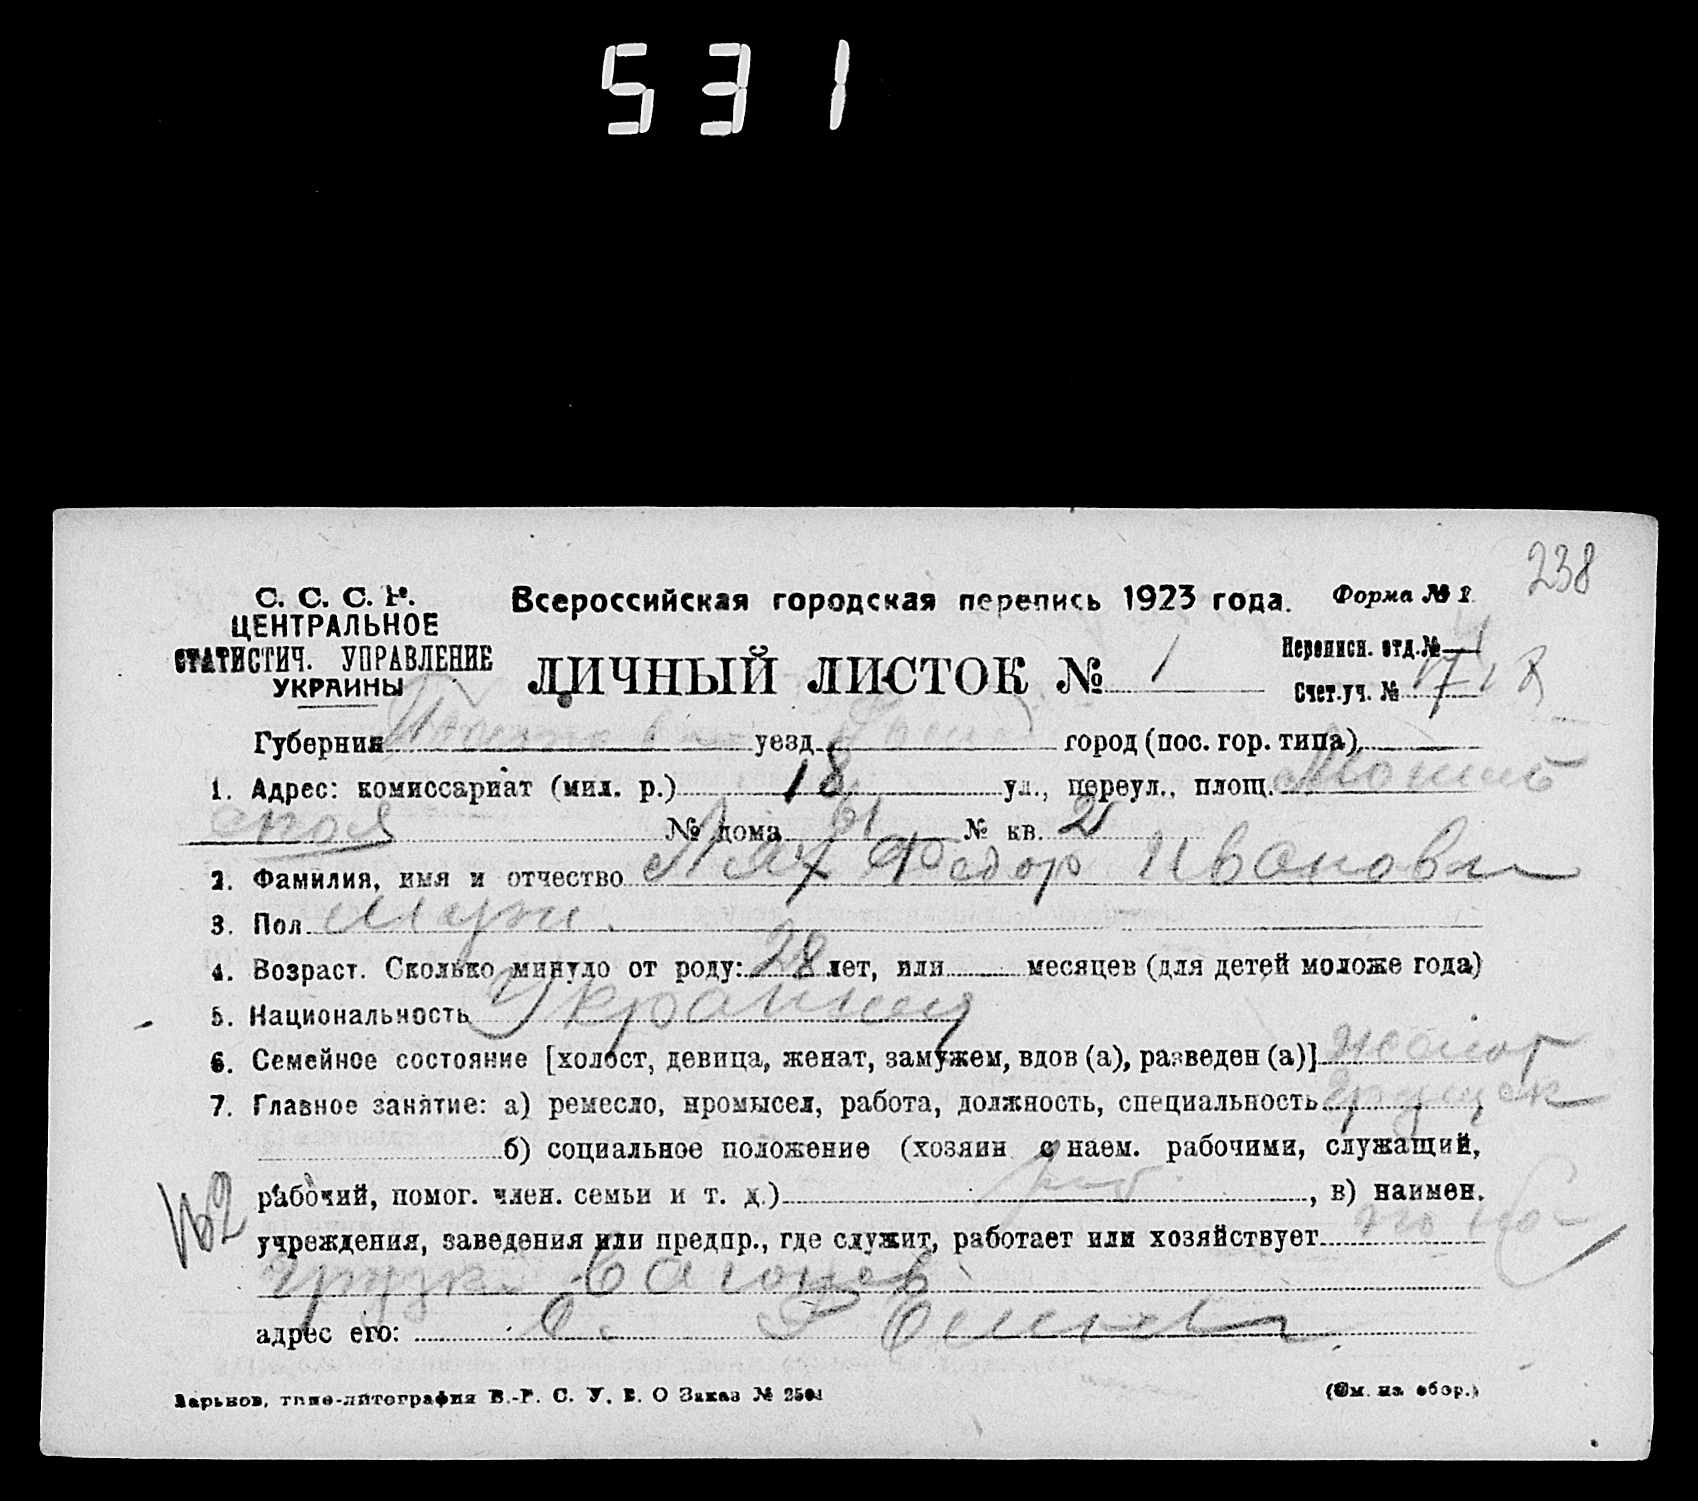 531
238
С. С. С. Р.
ЦЕНТРАЛЬНОЕ
СТАТИСТИЧ. УПРАВЛЕНИЕ
УКРАИНЫ
Всероссийская городская перепись 1923 года.
Форма № 1
ЛИЧНЫЙ ЛИСТОК № 1
Переписн. отд. №
Счет. уч. № 17
Губерния уезд город (пос. гор. типа)
1. Адрес: комиссариат (мил. р.) 18 ул., переул., площ.
ская № дома 61 № кв. 2
2. Фамилия, имя и отчество Лях Федор Иванович
3. Пол Муж.
4. Возраст. Сколько минуло от роду: 28 лет, или месяцев (для детей моложе года)
5. Национальность Украинец
6. Семейное состояние [холост, девица, женат, замужем, вдов (а), разведен (а)] женат
7. Главное занятие: а) ремесло, промысел, работа, должность, специальность грузчик
б) социальное положение (хозяин с наем. рабочими, служащий,
рабочий, помог. член. семьи и т. д.) раб. , в) наимен.
учреждения, заведения или предпр., где служит, работает или хозяйствует по по-
грузке вагонов
адрес его:
Харьков, типо-литография В.-Р. С. У. В. О Заказ № 2501
(См. на обор.)